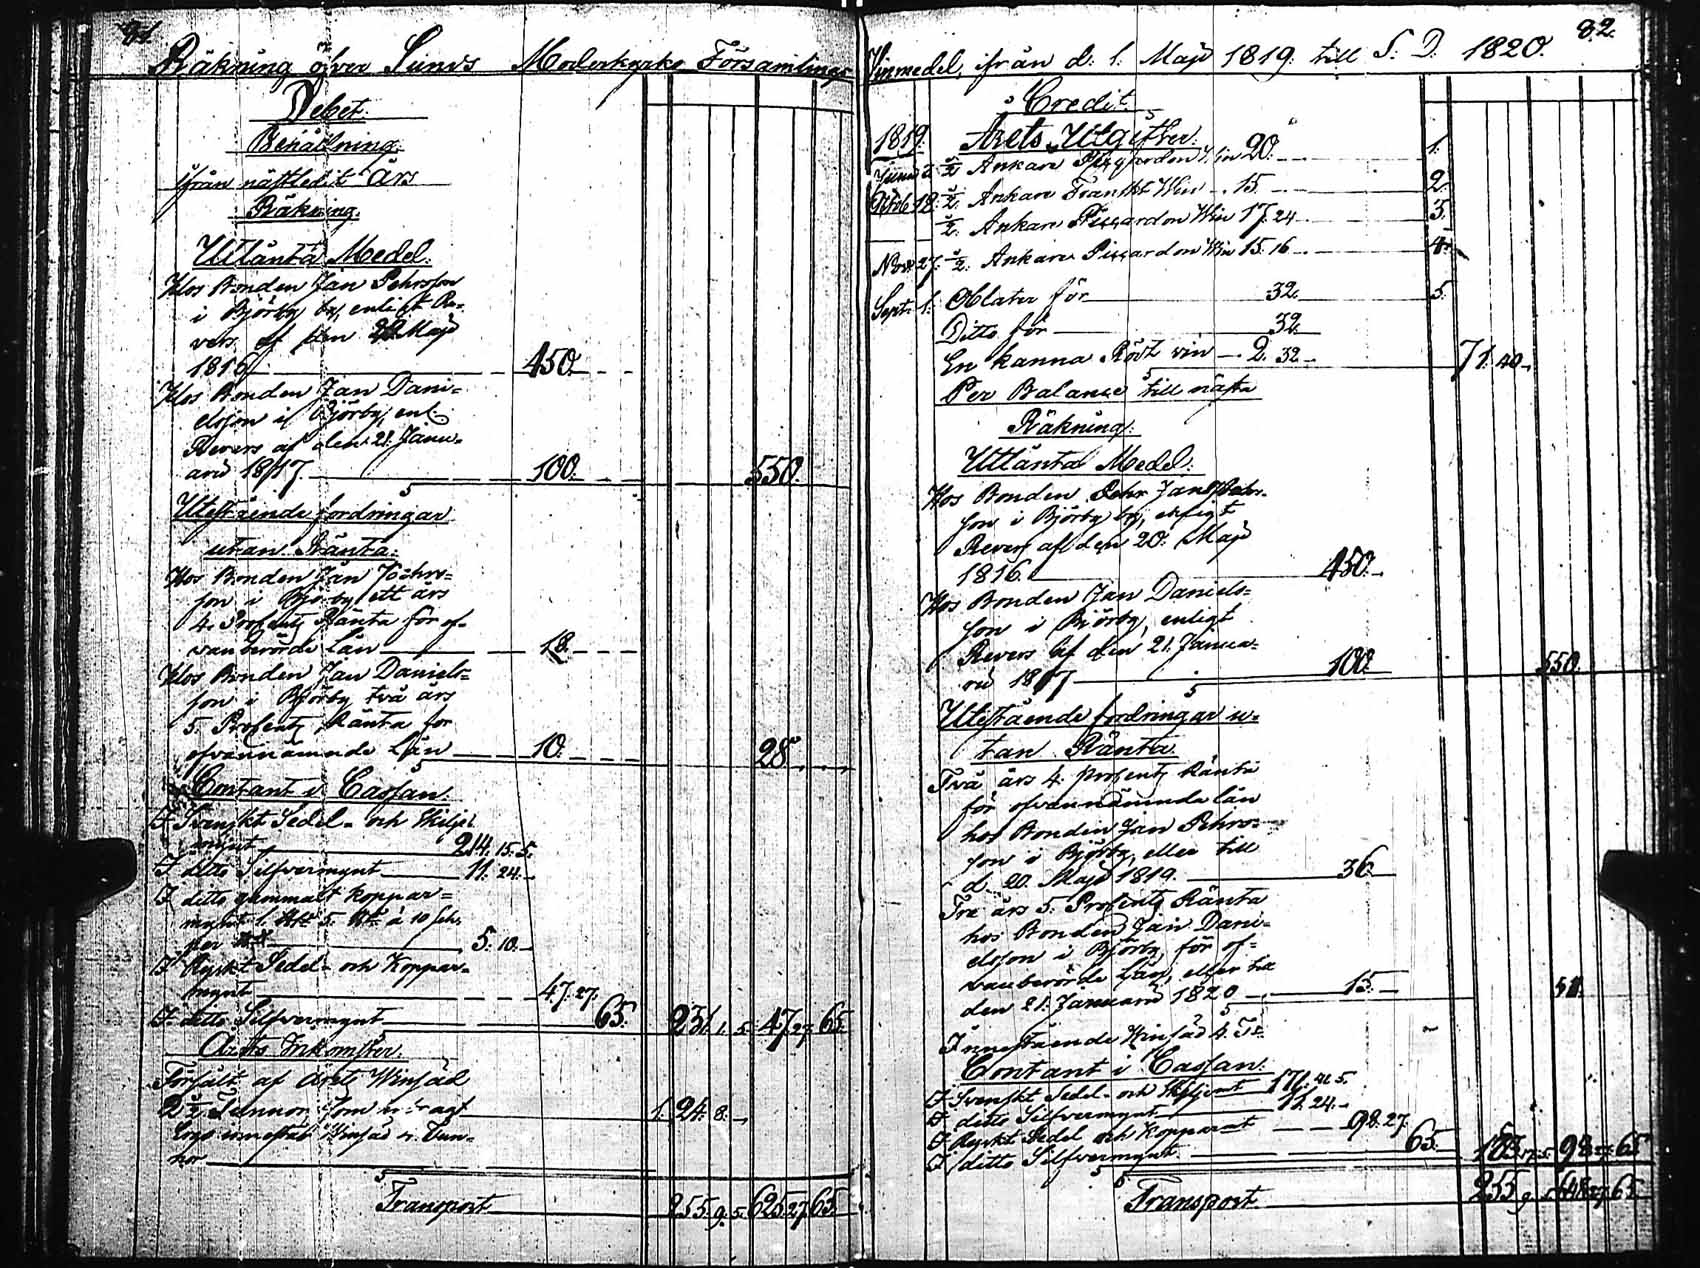 81.
Räkning öfver Sunds Moderkyrko Församlings
Debet.
Behållning
ifrån nästledit års
Räkning.
Utlånta Medel.
Hos Bonden Jan Pehrsson
i Björby by, enligt Re-
vers af den 20 Maji
1816 450.
Hos Bonden Jan Dani-
elsson i Björby, enl.
Revers af den 21. Janu-
arii 1817. 100. 550.
Utestående fordringar
utan Ränta.
Hos Bonden Jan Pehrs-
son i Björby ett års
4. Procents Ränta för of-
vanberörde Lån 18.
Hos Bonden Jan Daniels-
son i Björby två års
5. Procents Ränta för
ofvannämnde Lån 10. 28
Contant i Cassan.
I Svenskt Sedel- och Skilje-
mynt 214. 15. 5.
I ditto Silfvermynt 11. 24.
I ditto gammalt koppar-
mynt 5. à 10 sch.
per 5. 10.
I Ryskt Sedel- och Koppar-
mynt 47. 27.
I ditto Silfvermynt 65. 231. 1. 5. 47. 27. 65.
Årets Inkomster.
Försålt af årets Winsäd
2 1/2 Tunnor som 1. 24. 8.
Winsäd 4. Tun-
nor
Transport 255. 9. 5. 625. 27. 65.
82.
Vinmedel, ifrån d. 1. Maji 1819. till S. D. 1820.
Credit.
1819. Årets Utgifter.
1/2 Ankare Win 20. 1.
Octob. 18. 1/2 Ankare Franskt Win 15. 2.
1/2 Ankare Piccardon Win 17. 24 3.
Nov. 27. 1/2 Ankare Piccardon Win 15. 16 4.
Sept. 1. Oblater för 32. 5.
Ditto för 32.
En kanna Rödt vin 2. 32 71. 40.
Per Balance till nästa
Räkning.
Utlånta Medel.
Hos Bonden Jan Pehrs-
son i Björby by, enligt
Revers af den 20. Maji
1816. 450.
Hos Bonden Jan Daniels-
son i Björby, enligt
Revers af den 21. Janua-
rii 1817 100. 550.
Utestående fordringar u-
tan Ränta.
Två års 4. procents Ränta
för ofvannämnda lån
hos Bonden Jan Pehrs-
son i Björby, eller till
d. 20. Maji 1819. 36.
Tre års 5. Procents Ränta
hos Bonden Jan Dani-
elsson i Björby, för of-
vanberörde Lån, eller till
den 21. Januarii 1820 15. 51.
Innestående Winsäd 4. Tr.
Contant i Cassan.
I Svenskt Sedel- och Skiljemynt 171. 41. 5.
I ditto Silfvermynt 11. 24.
I Ryskt Sedel och Kopparmt 98. 27.
I ditto Silfvermynt. 65. 183. 17. 5. 98. 27. 65
Transport. 255. 9. 5. 27. 65.